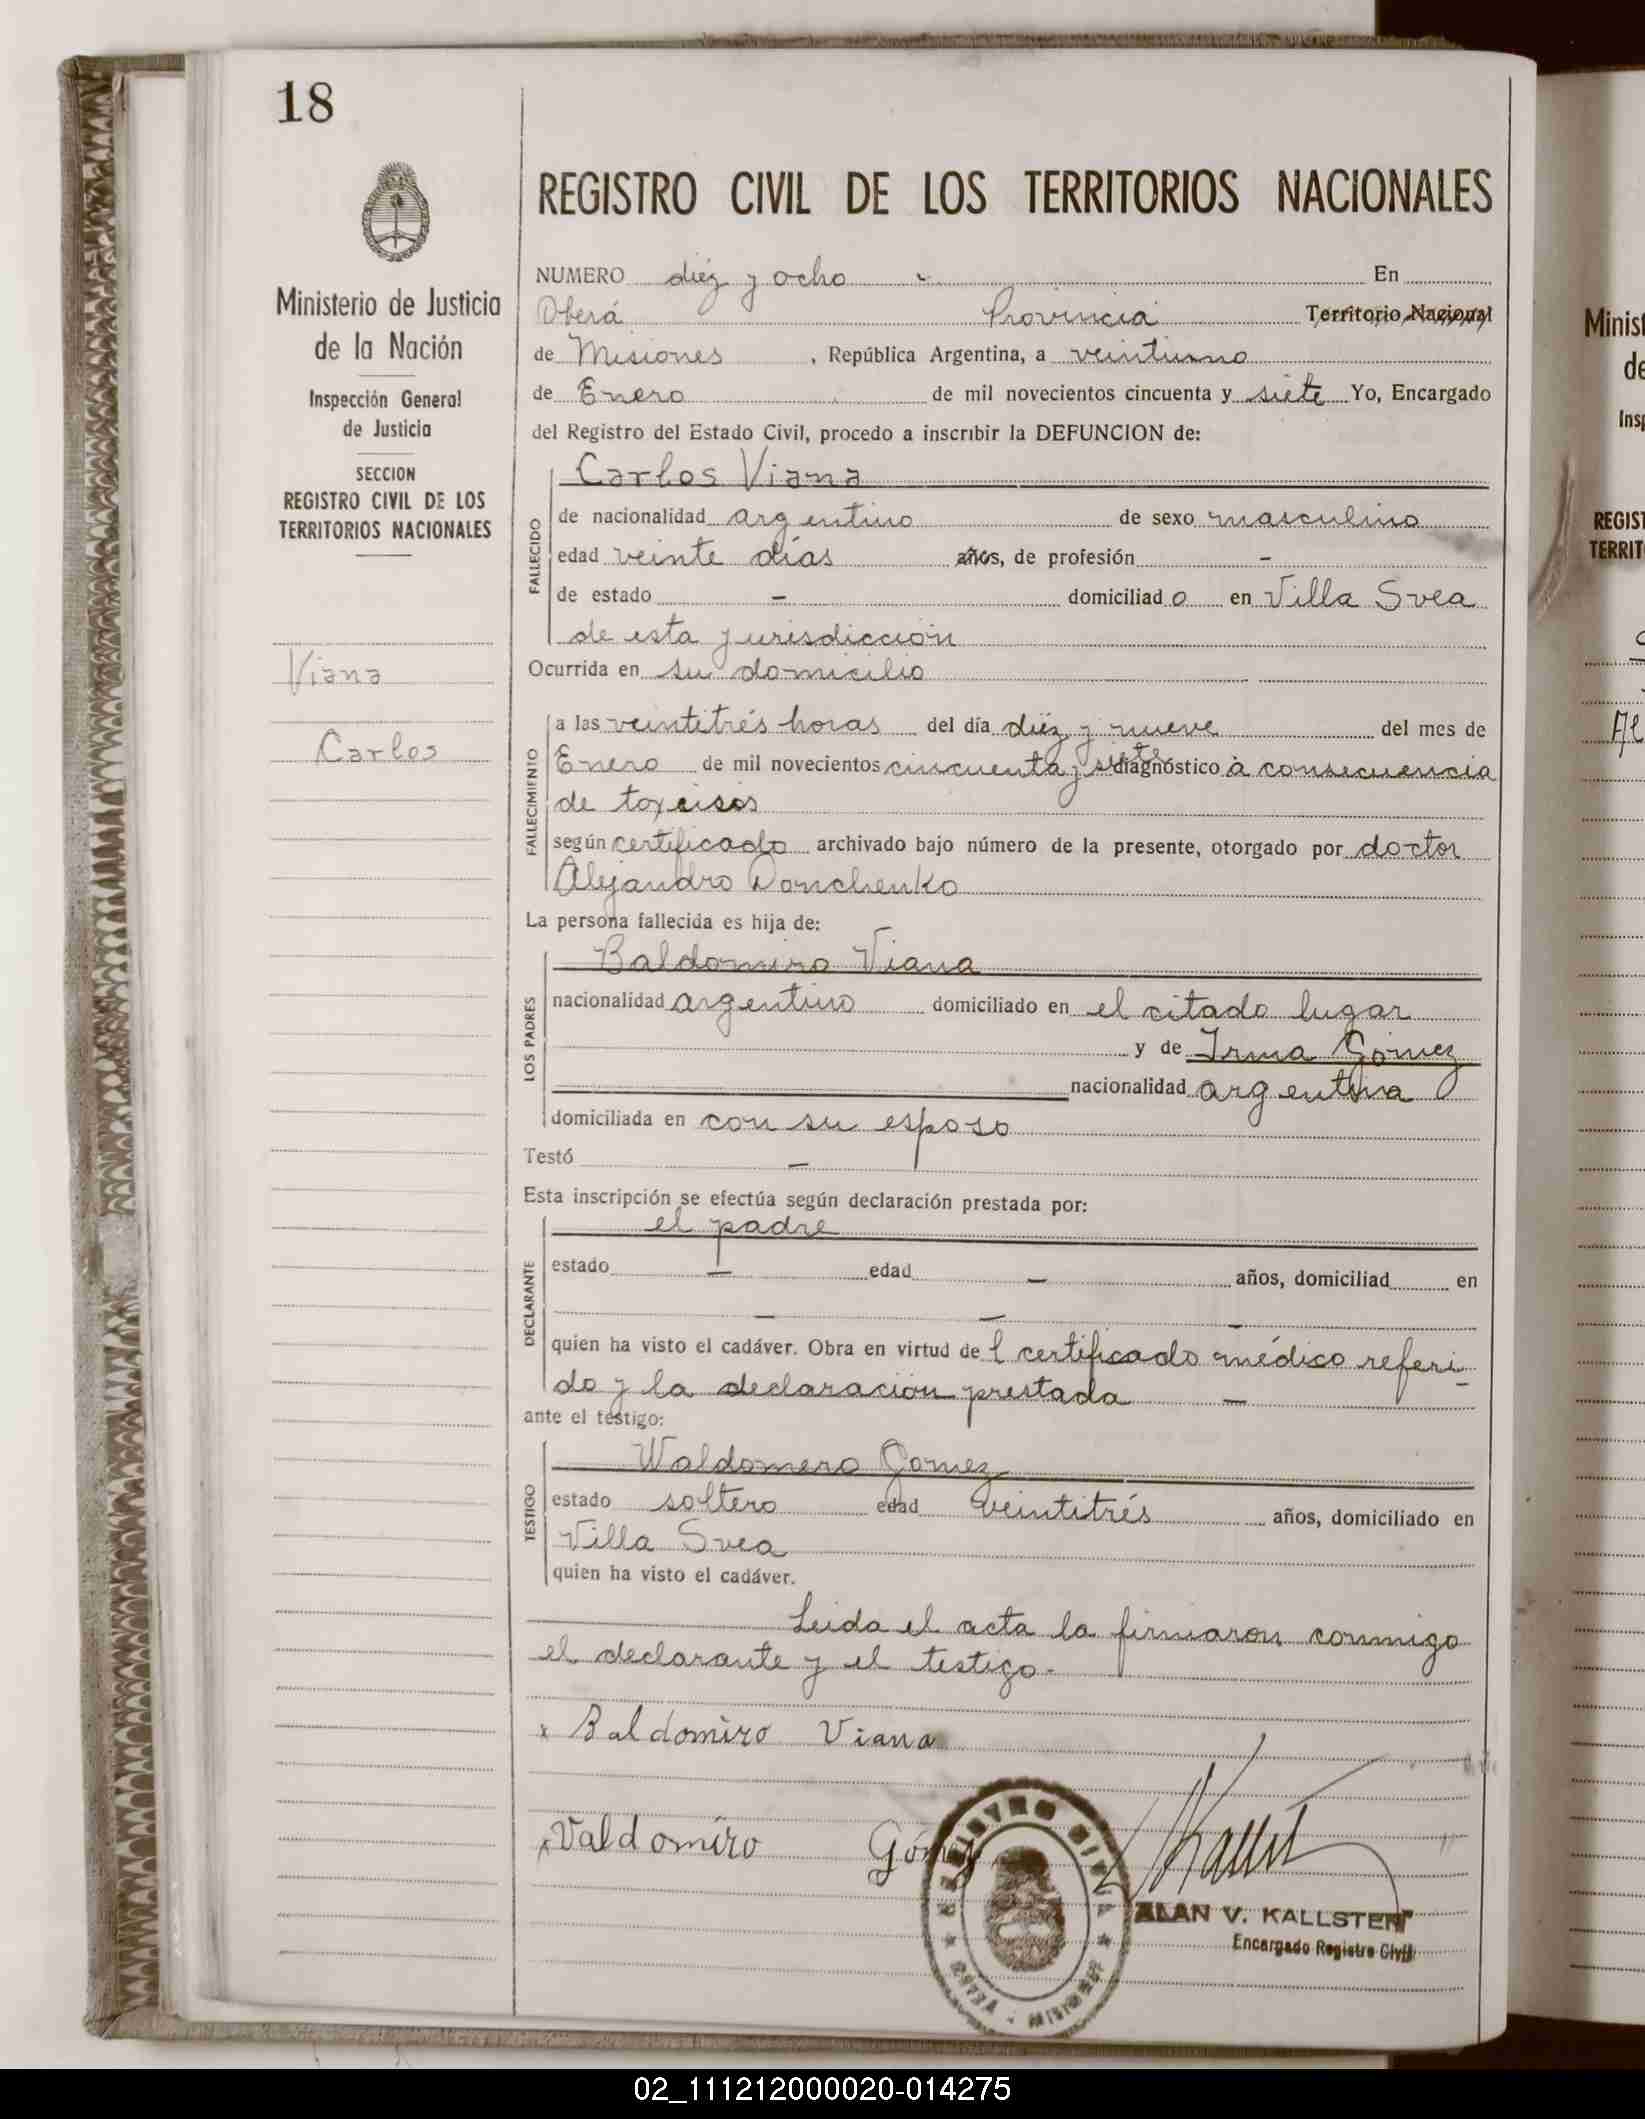 18
Ministerio de Justicia
de la Nación
Inspección General
de Justicia
SECCION
REGISTRO CIVIL DE LOS
TERRITORIOS NACIONALES
Viana
Carlos
REGISTRO CIVIL DE LOS TERRITORIOS NACIONALES
NUMERO diéz y ocho En
Oberá Provincia Territorio Nacional
de Misiones , República Argentina, a veintiuno
de Enero de mil novecientos cincuenta y siete Yo, Encargado
del Registro del Estado Civil, procedo a inscribir la DEFUNCION de:
FALLECIDO
Carlos Viana
de nacionalidad argentino de sexo masculino
edad veinte días años, de profesión -
de estado - domiciliado en Villa Svea
de esta jurisdicción
Ocurrida en su domicilio
FALLECIMIENTO
a las veintitrés horas del día diéz y nueve del mes de
Enero de mil novecientos cincuenta y siete diagnóstico a consecuencia
de toxcisis
según certificado archivado bajo número de la presente, otorgado por doctor
Alejandro Donchenko
La persona fallecida es hija de:
LOS PADRES
Baldomiro Viana
nacionalidad argentino domiciliado en el citado lugar
y de Irma Gómez
nacionalidad argentina
domiciliada en con su esposo
Testó -
Esta inscripción se efectúa según declaración prestada por:
DECLARANTE
el padre
estado - edad - años, domiciliad en
- - -
quien ha visto el cadáver. Obra en virtud del certificado médico referi-
do y la declaración prestada -
ante el testigo:
TESTIGO
Waldomero Gomez
estado soltero edad veintitrés años, domiciliado en
Villa Svea
quien ha visto el cadáver.
Leida el acta la firmaron conmigo
el declarante y el testigo.-
x Baldomiro Viana
x Valdomiro Gómez
REGISTRO CIVIL
OBERA - MISIONES
ALAN V. KALLSTEN
Encargado Registro Civil
Minist
de
Insp
REGIST
TERRIT
Al
02_111212000020-014275